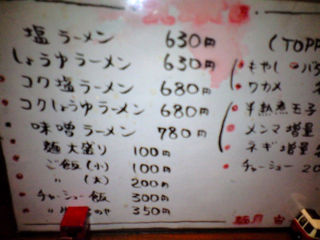 塩ラーメン 630円
しょうゆラーメン 630円
コク塩ラーメン 680円
コクしょうゆラーメン 680円
味噌ラーメン 780円
麺大盛り 100円
ご飯(小) 100円
〃 (大) 200円
チャーシュー飯 300円
350円
(TOPP
もやし
ワカメ
半熟煮玉子
メンマ増量
ネギ増量
チャーシュー 20